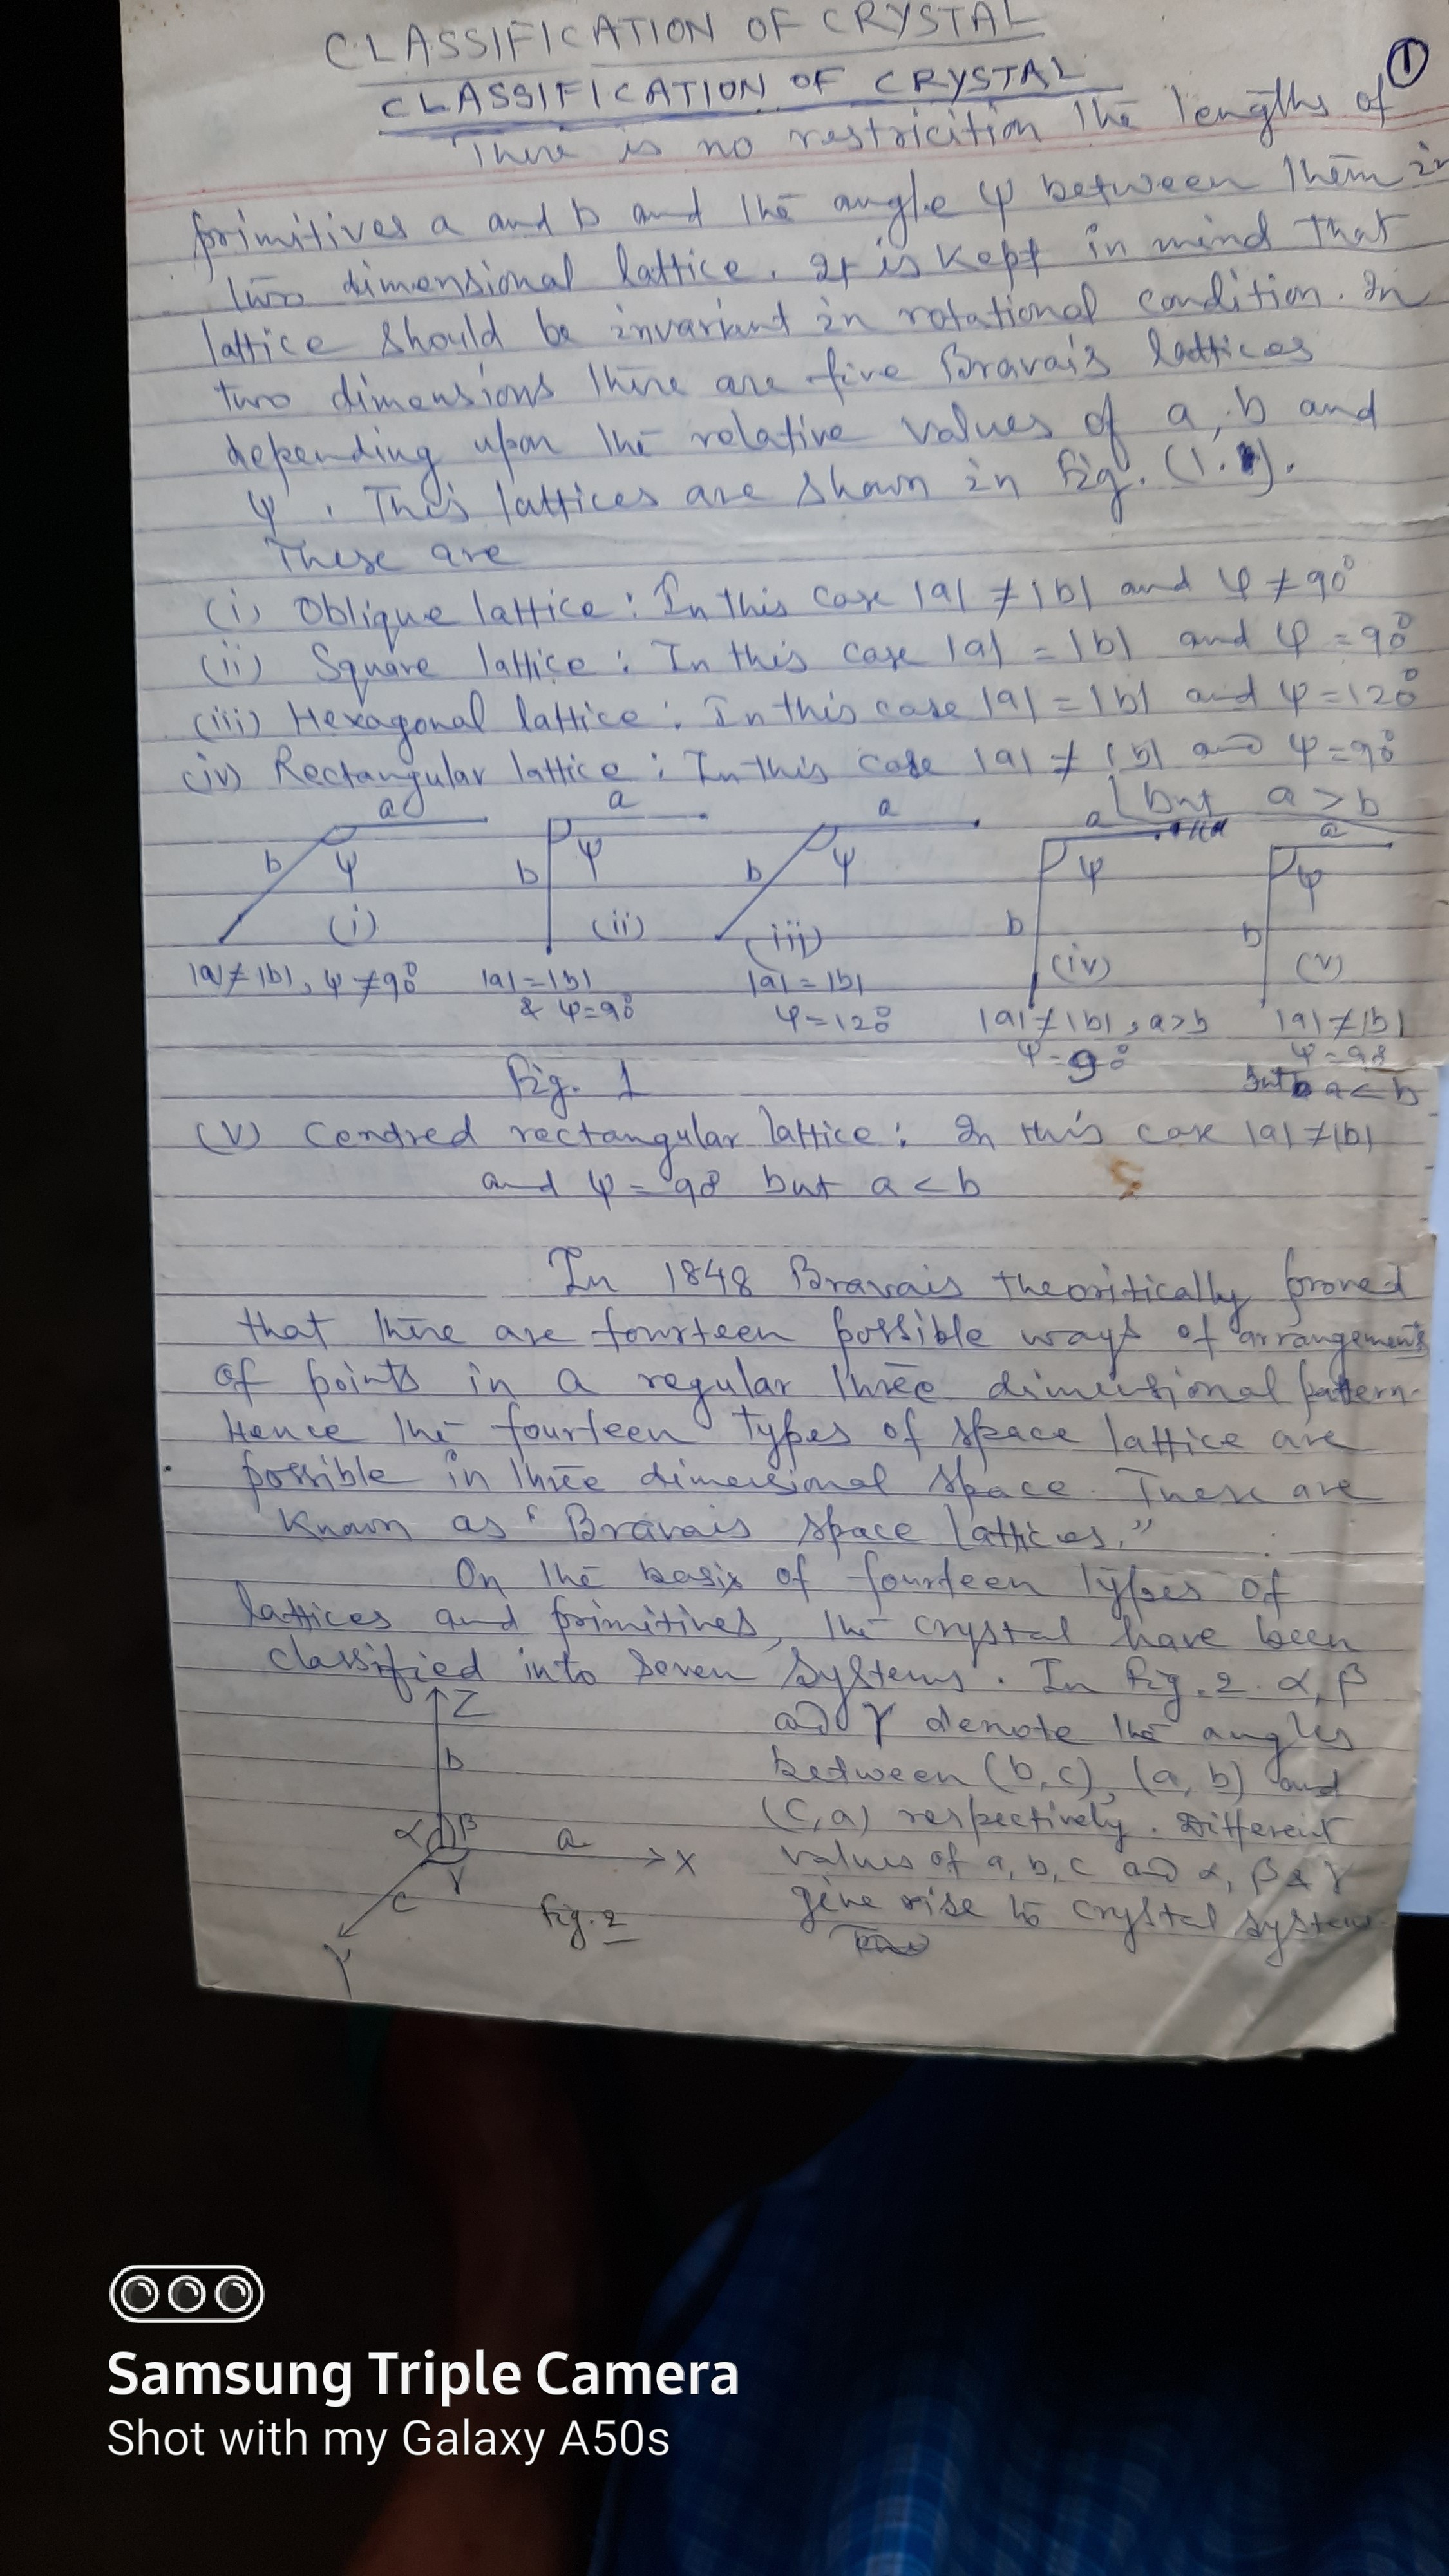 CLASSIFICATION OF CRYSTAL
CLASSIFICATION OF CRYSTAL
1
There is no restricition the lengths of
primitives a and b and the angle φ between them in
two dimensional lattice. It is kept in mind that
lattice should be invariant in rotational condition. In
two dimensions there are five Bravais lattices
depending upon the relative values of a, b and
φ. This lattices are shown in Fig. (1.1).
These are
(i) Oblique lattice : In this case |a| ≠ |b| and φ ≠ 90°
(ii) Square lattice : In this case |a| = |b| and φ = 90°
(iii) Hexagonal lattice : In this case |a| = |b| and φ = 120°
(iv) Rectangular lattice : In this case |a| ≠ |b| and φ = 90°
but a > b
a b φ (i)
a b φ (ii)
a b φ (iii)
a b φ (iv)
a b φ (v)
|a| ≠ |b|, φ ≠ 90°
|a| = |b|
& φ = 90°
|a| = |b|
φ = 120°
|a| ≠ |b|, a > b
φ = 90°
|a| ≠ |b|
φ = 90°
but a < b
Fig. 1
(V) Centred rectangular lattice : In this case |a| ≠ |b|
and φ = 90° but a < b
In 1848 Bravais theoritically proved
that there are fourteen possible ways of arrangements
of points in a regular three dimensional pattern.
Hence the fourteen types of space lattice are
possible in three dimensional space. These are
known as "Bravais space lattices."
On the basis of fourteen types of
lattices and primitives, the crystal have been
classified into seven systems. In Fig. 2. α, β
and γ denote the angles
between (b,c), (a,b) and
(c,a) respectively. Different
values of a, b, c and α, β & γ
give rise to crystal system
Z
b
α β
a
X
γ
c
Y
Fig. 2
Samsung Triple Camera
Shot with my Galaxy A50s